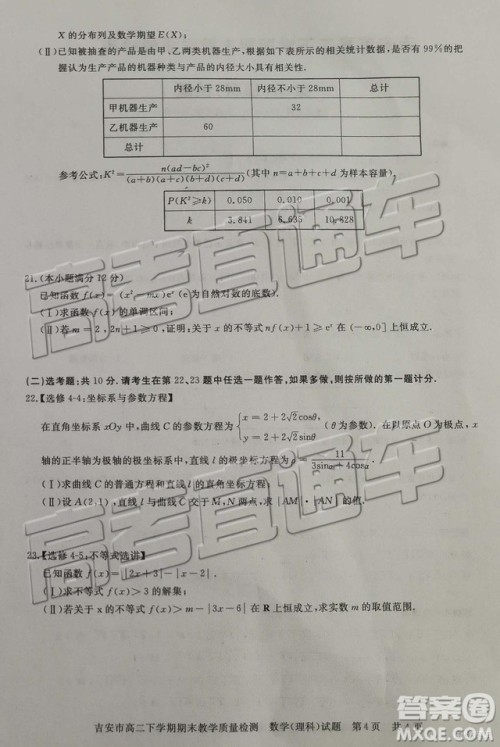 X 的分布列及数学期望 E(X);
(Ⅱ)已知被抽查的产品是由甲、乙两类机器生产,根据如下表所示的相关统计数据,是否有 99%的把
握认为生产产品的机器种类与产品的内径大小具有相关性.
内径小于 28mm 内径不小于 28mm 总计
甲机器生产 32
乙机器生产 60
总计
参考公式:K²=n(ad-bc)²/((a+b)(a+c)(b+d)(c+d))(其中 n=a+b+c+d 为样本容量)
P(K²≥k) 0.050 0.010 0.001
k 3.841 6.635 10.828
21.(本小题满分 12 分)
已知函数 f(x)=(x²-mx)eˣ(e 为自然对数的底数).
(Ⅰ)求函数 f(x)的单调区间;
(Ⅱ)若 m=2,2n+1≥0,证明:关于 x 的不等式 nf(x)+1≥eˣ 在(-∞,0]上恒成立.
(二)选考题:共 10 分.请考生在第 22、23 题中任选一题作答,如果多做,则按所做的第一题计分.
22.【选修 4-4:坐标系与参数方程】
在直角坐标系 xOy 中,曲线 C 的参数方程为{x=2+2√2cosθ, y=2+2√2sinθ (θ为参数),以原点 O 为极点,x
轴的正半轴为极轴的极坐标系中,直线 l 的极坐标方程为 ρ=11/(3sinα+4cosα)
(Ⅰ)求曲线 C 的普通方程和直线 l 的直角坐标方程;
(Ⅱ)设 A(2,1),直线 l 与曲线 C 交于 M、N 两点,求 |AM|·|AN| 的值.
23.【选修 4-5:不等式选讲】
已知函数 f(x)=|2x+3|-|2x-3|.
(Ⅰ)求不等式 f(x)>3 的解集;
(Ⅱ)若关于 x 的不等式 f(x)>m-|3x-6|在 R 上恒成立,求实数 m 的取值范围.
吉安市高二下学期期末教学质量检测 数学(理科)试题 第 4 页 共 4 页
高考直通车
高考直通车
作业帮